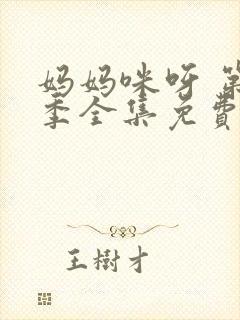 妈妈咪呀 第
季全集免費
王樹才